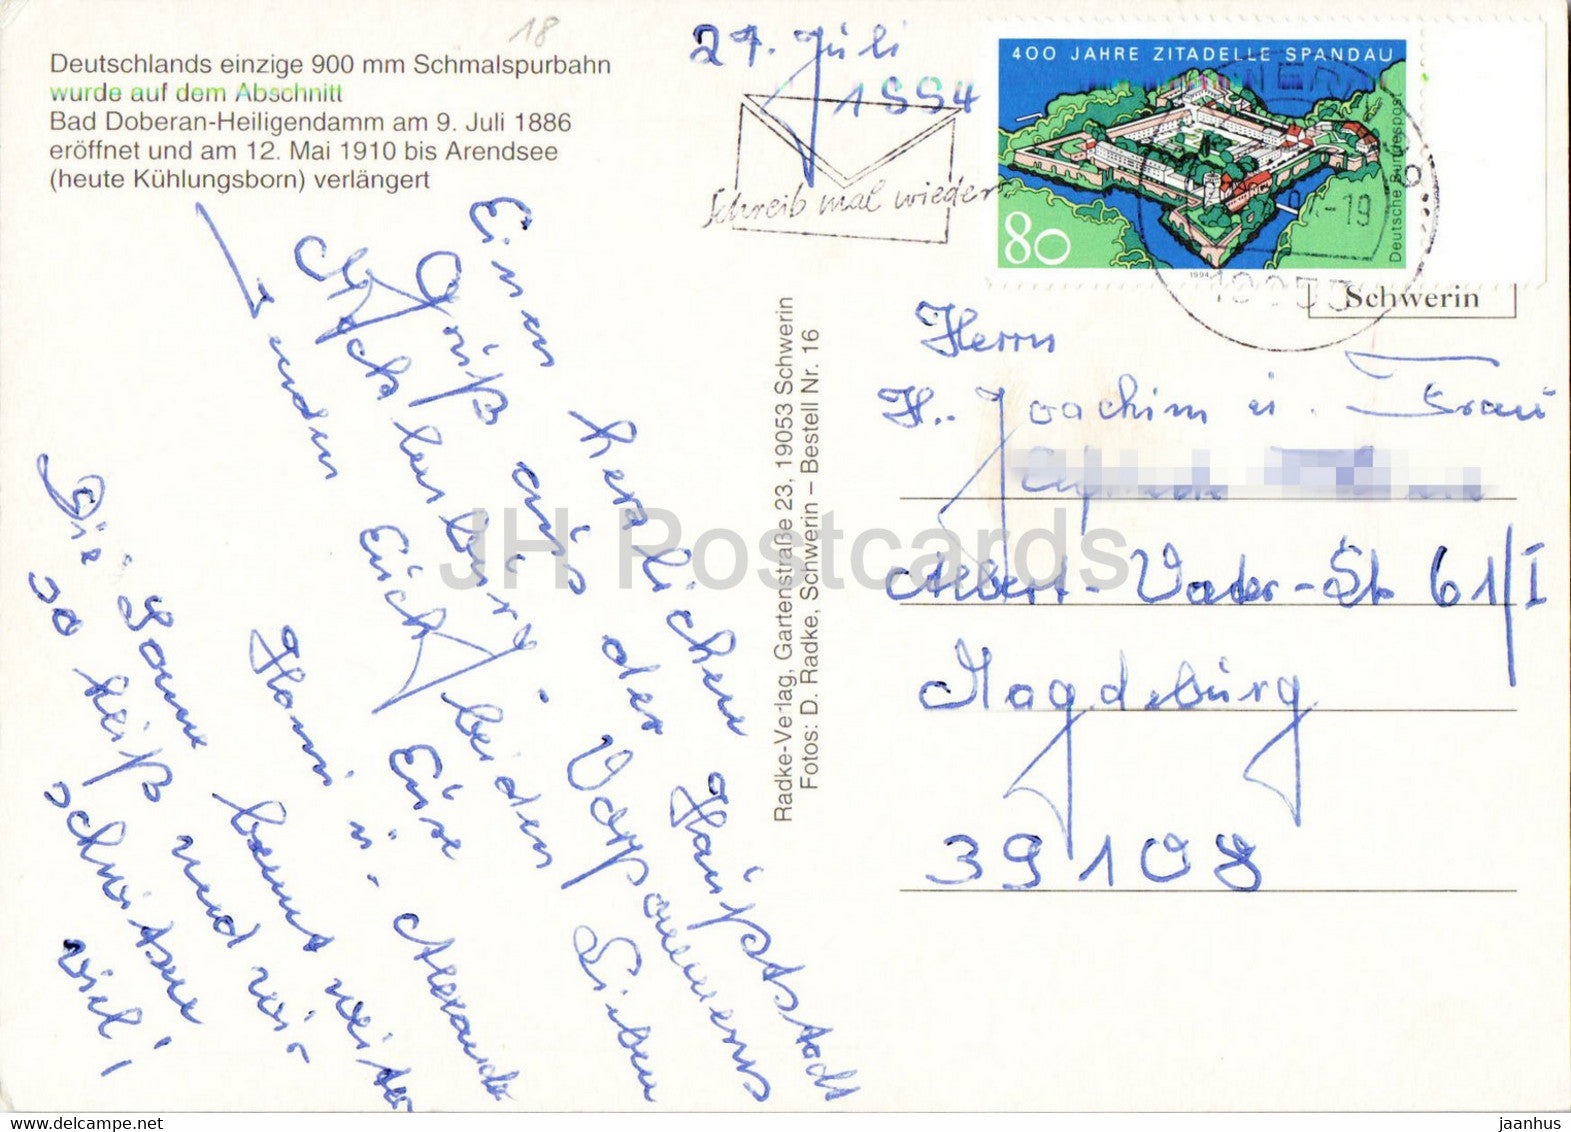 18
Deutschlands einzige 900 mm Schmalspurbahn
wurde auf dem Abschnitt
Bad Doberan-Heiligendamm am 9. Juli 1886
eröffnet und am 12. Mai 1910 bis Arendsee
(heute Kühlungsborn) verlängert
27. Juli
1994
Schreib mal wieder
400 JAHRE ZITADELLE SPANDAU
Deutsche Bundespost
80
1994
19053
Schwerin
Einen herzlichen
Gruß aus der Hauptstadt
Mecklenburg Vorpommerns
senden Euch beiden Lieben
Eure
Hanni u. Alexander
Die Sonne brennt weiter
so heiß und wir
schwitzen
viel!
Radke-Verlag, Gartenstraße 23, 19053 Schwerin
Fotos: D. Radke, Schwerin – Bestell Nr. 16
Herrn
H. Joachim u. Frau
Albert-Vater-Str 61/I
Magdeburg
39108
JH Postcards
www.delcampe.net
jaanhus